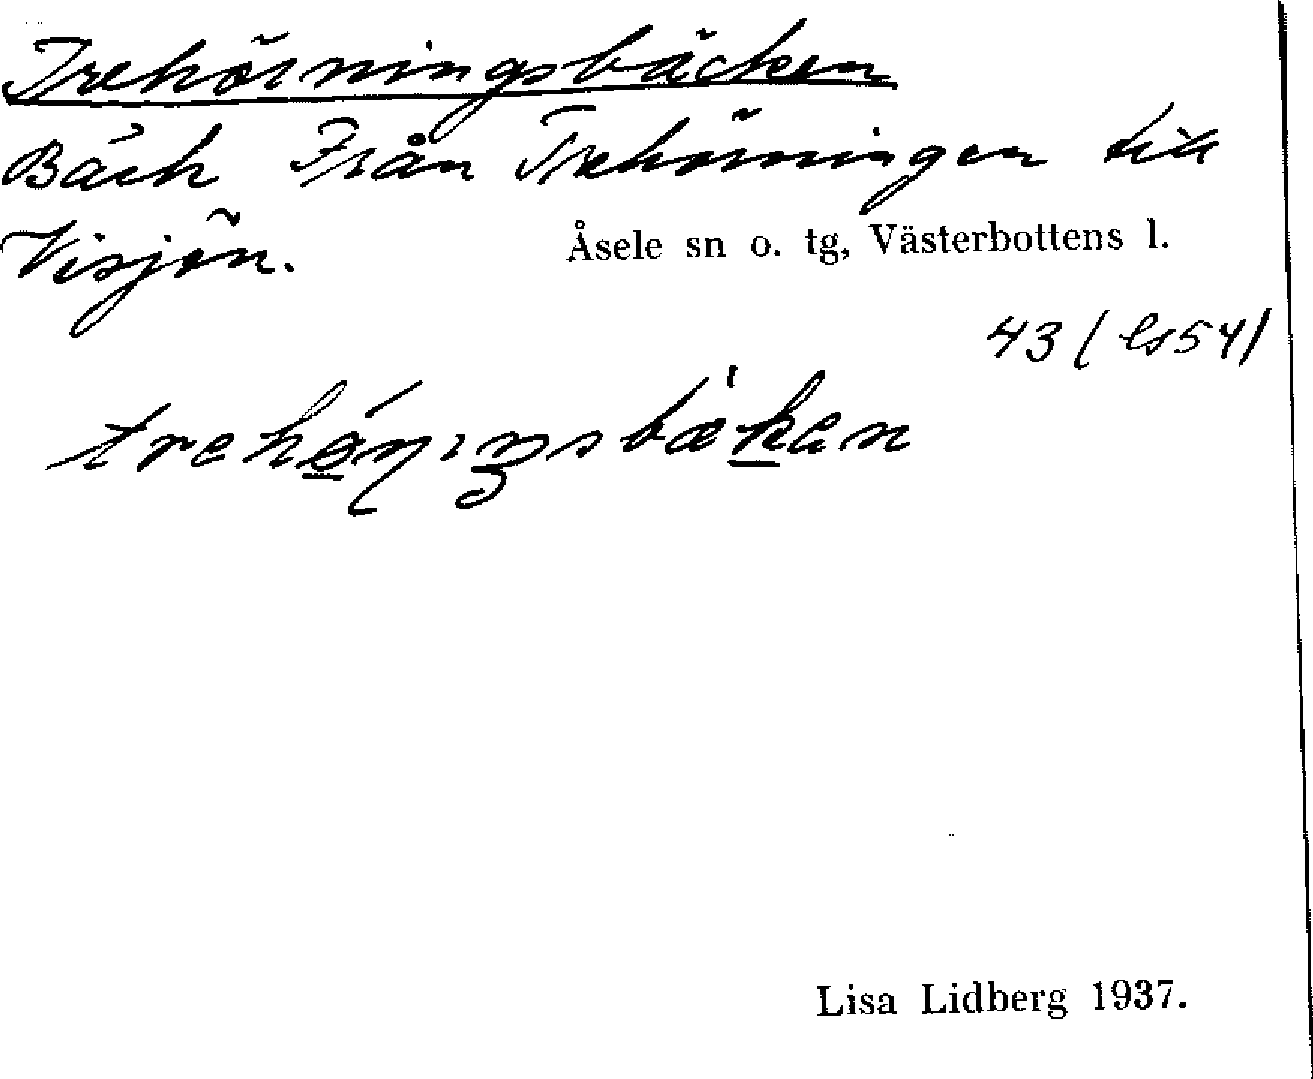 Trehörningsbäcken
Bäck Från Trehörningen till
Visjön.
Åsele sn o. tg, Västerbottens l.
43 (ls54)
Lisa Lidberg 1937.